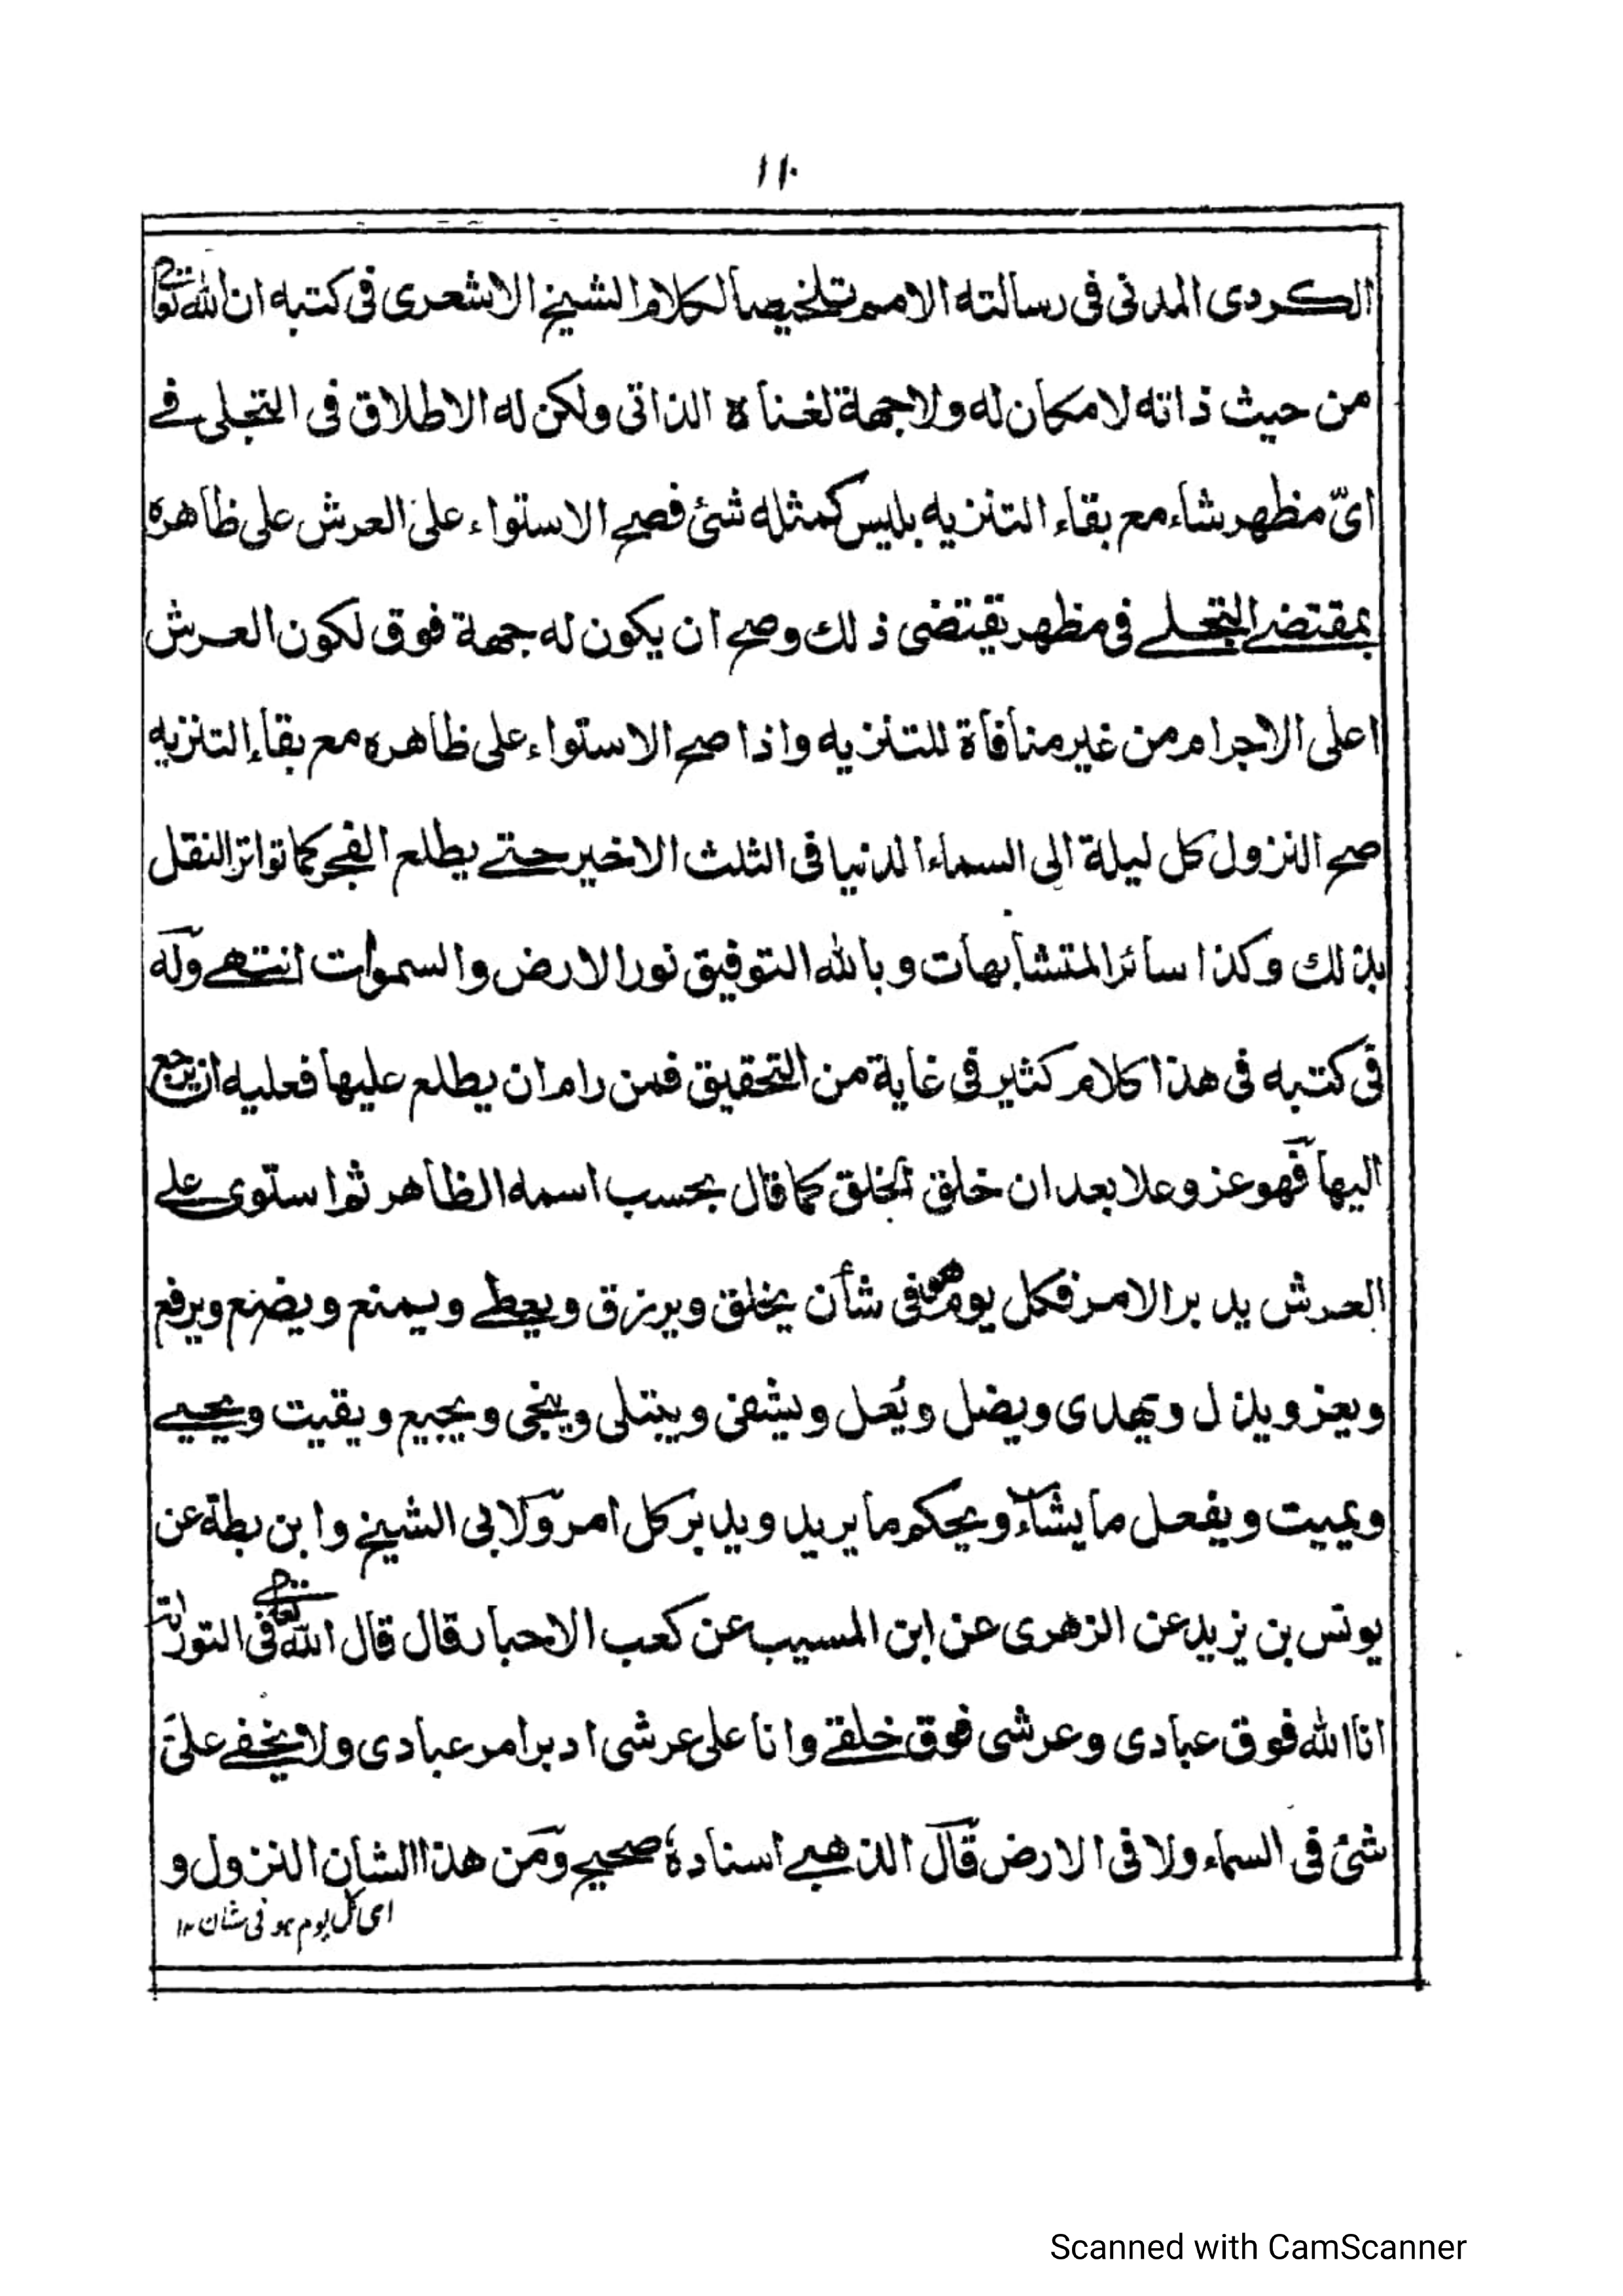 ١١٠
الكردى المدنى فى رسالته الامم تلخيصا لكلام الشيخ الاشعرى فى كتبه ان الله تعالى
من حيث ذاته لا مكان له ولا جهة لغناه الذاتى ولكن له الاطلاق فى التجلى فے
اىّ مظهر شاء مع بقاء التنزيه بليس كمثله شئ فصح الاستواء على العرش على ظاهره
بمقتضے التجلے فى مظهر يقتضى ذلك وصح ان يكون له جهة فوق لكون العرش
اعلى الاجرام من غير منافاة للتنزيه واذا صح الاستواء على ظاهره مع بقاء التنزيه
صح النزول كل ليلة الى السماء الدنيا فى الثلث الاخير حتے يطلع الفجر كما تواتر النقل
بذلك وكذا سائر المتشابهات وبالله التوفيق نور الارض والسموات انتهے وله
فى كتبه فى هذا كلام كثير فى غاية من التحقيق فمن رام ان يطلع عليها فعليه ان يرجع
اليها فهو عز وعلا بعد ان خلق الخلق كما قال بحسب اسمه الظاهر ثم استوى علے
العرش يدبر الامر فكل يوم هو فى شأن يخلق ويرزق ويعطے ويمنع ويضع ويرفع
ويعز ويذل ويهدى ويضل ويُعل ويشفى ويبتلى وينجى ويجيع ويقيت ويحيے
ويميت ويفعل ما يشاء ويحكم ما يريد ويدبر كل امر ولابى الشيخ وابن بطة عن
يونس بن يزيد عن الزهرى عن ابن المسيب عن كعب الاحبار قال قال الله تعالے فى التوراة
انا الله فوق عبادى وعرشى فوق خلقے وانا على عرشى ادبر امر عبادى ولا يخفے علىَّ
شئ فى السماء ولا فى الارض قال الذهبے اسناده صحيح ومن هذا الشان النزول و
اى كل يوم هو فى شان ١٢
Scanned with CamScanner